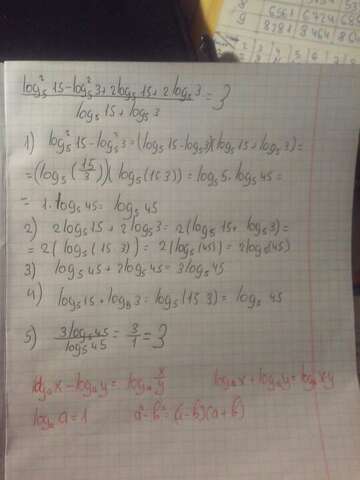 log₅²15-log₅²3+2log₅15+2log₅3
log₅15+log₅3
=3
1) log₅²15-log₅²3=(log₅15-log₅3)(log₅15+log₅3)=
=(log₅(15/3))(log₅(15·3))=log₅5·log₅45=
= 1·log₅45=log₅45
2) 2log₅15+2log₅3=2(log₅15+log₅3)=
=2(log₅(15·3))=2(log₅(45))=2log₅(45)
3) log₅45+2log₅45=3log₅45
4) log₅15+log₅3=log₅(15·3)=log₅45
5) 3log₅45/log₅45=3/1=3
logₐx-logₐy=logₐx/y logₐx+logₐy=logₐxy
logₐa=1 a²-b²=(a-b)(a+b)
6561 6724
8281 8464